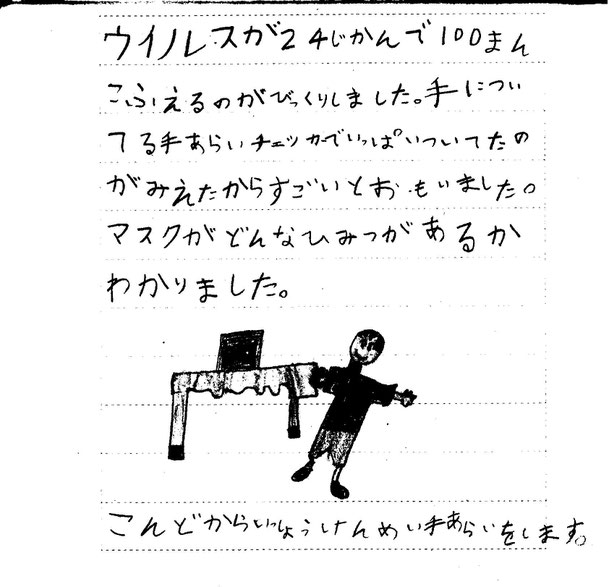 ウイルスが24じかんで100まん
こふえるのがびっくりしました。手につい
てる手あらいチェッカーでいっぱいついてたの
がみえたからすごいとおもいました。
マスクがどんなひみつがあるか
わかりました。
こんどからいっしょうけんめい手あらいをします。